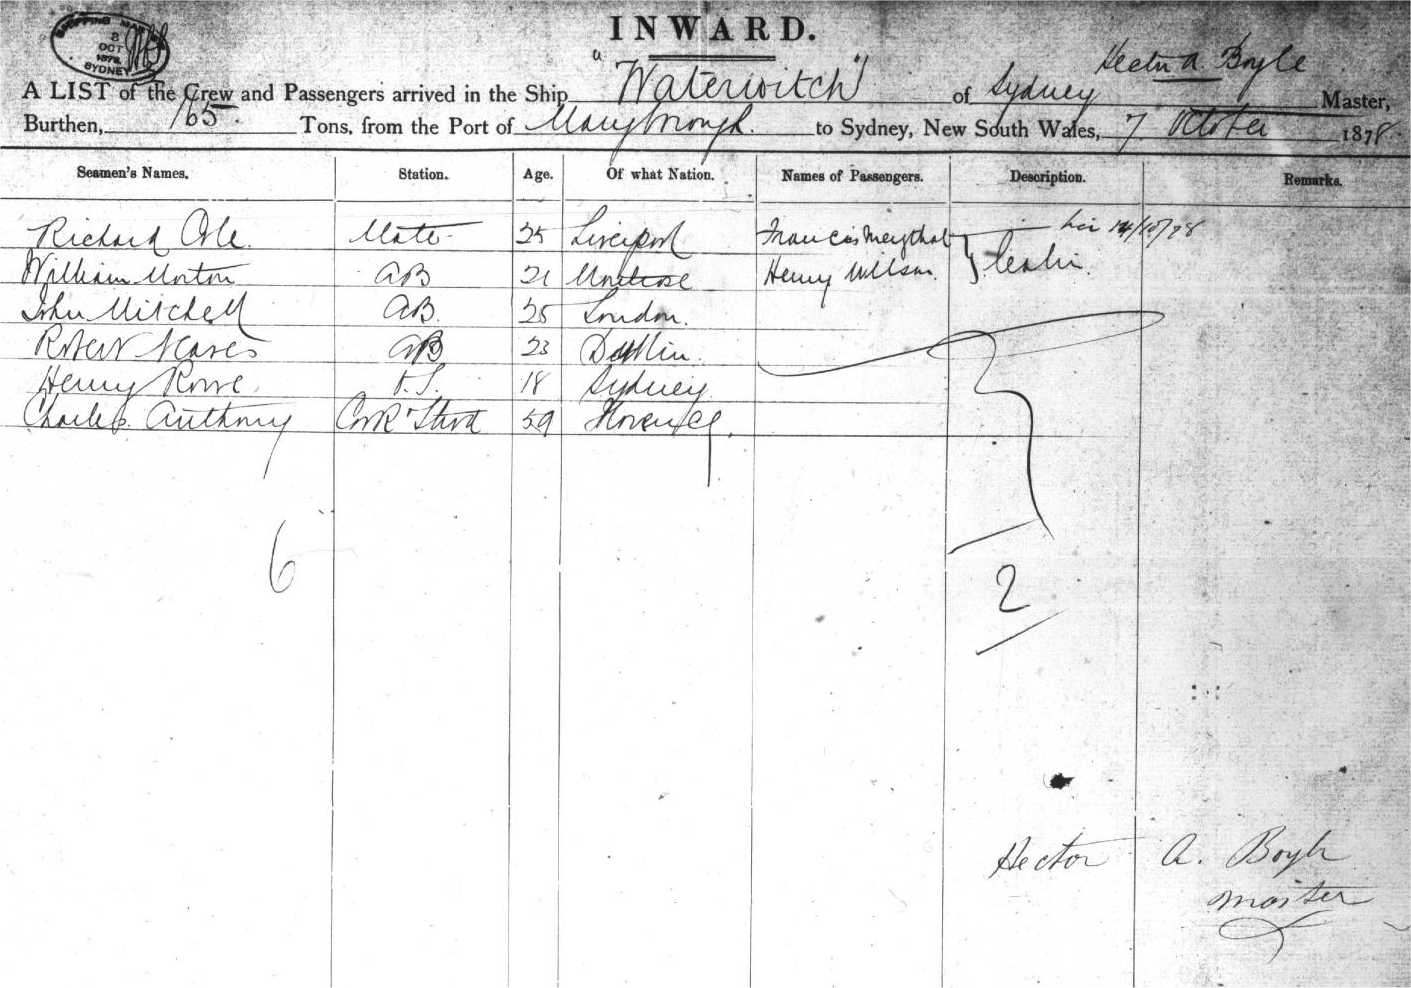 SHIPPING MASTER
8
OCT
1878
SYDNEY
INWARD.
Hector A Boyle
A LIST of the Crew and Passengers arrived in the Ship "Waterwitch" of Sydney Master,
Burthen, 165. Tons, from the Port of Maryborough. to Sydney, New South Wales, 7 October 1878
Seamen's Names. Station. Age. Of what Nation. Names of Passengers. Description. Remarks.
Richard Cole. Mate 25 Liverpool Francis 14/10/78
William Morton AB 21 Montrose Henry Willson
John Mitchell AB. 25 London.
Robert AB 23 Dublin.
Henry Rowe O.S. 18 Sydney
Charles Anthony Cook & Stwd 59 Florence
6
2
Hector A. Boyle
Master